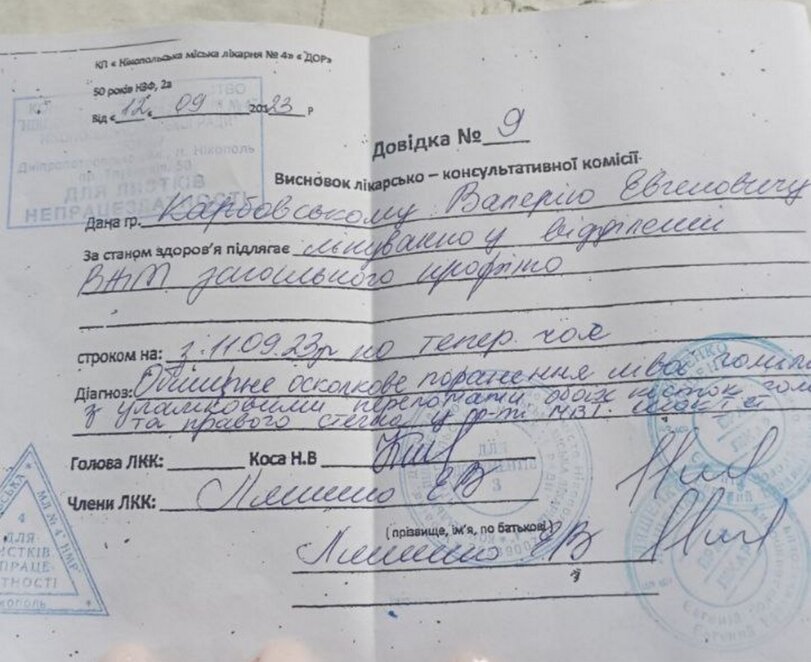 КП « Нікопольська міська лікарня № 4» « ДОР»
50 років НЗФ, 2а
Від « 12 « 09 20123 р
ДЛЯ ЛИСТКІВ
НЕПРАЦЕЗДАТНОСТІ
Довідка № 9
Висновок лікарсько – консультативної комісії.
Дана гр. Карбовському Валерію Евгеновичу
За станом здоров'я підлягає лікуванню у відділенні
ВАІТ загального профілю
строком на: з 11.09.23р по тепер. час
Діагноз: Обширне осколкове поранення лівої гомілки
з уламковими переломами обох кісток гом
та правого стегна у р-ті МВТ. шок
Голова ЛКК: Коса Н.В
Члени ЛКК: Ляшенко ЕВ
( прізвище, ім'я, по батькові )
Ляшенко ЕВ